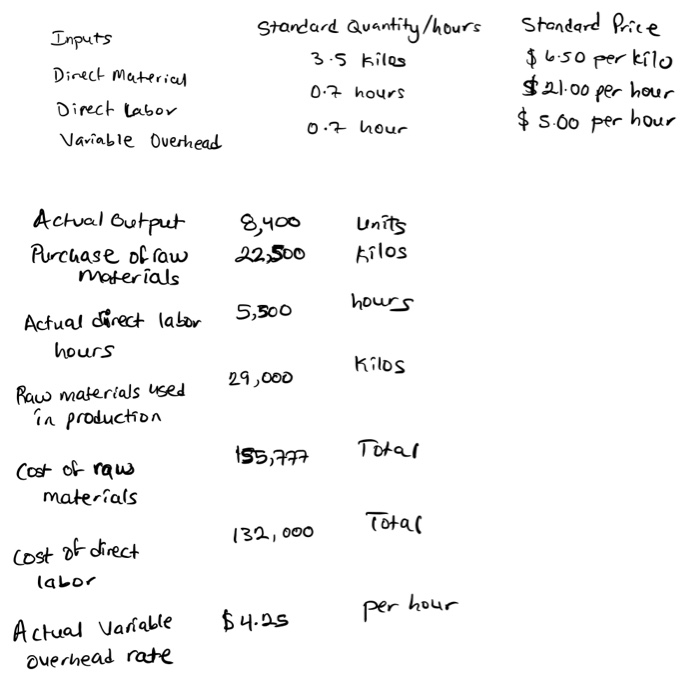 Inputs Standard Quantity/hours Standard Price
Direct Material 3.5 kilos $6.50 per kilo
Direct Labor 0.7 hours $21.00 per hour
Variable Overhead 0.7 hour $5.00 per hour
Actual Output 8,400 units
Purchase of raw 22,500 kilos
materials
Actual direct labor 5,500 hours
hours
Raw materials used 29,000 Kilos
in production
Cost of raw 155,777 Total
materials
Cost of direct 132,000 Total
labor
Actual Variable $4.25 per hour
overhead rate